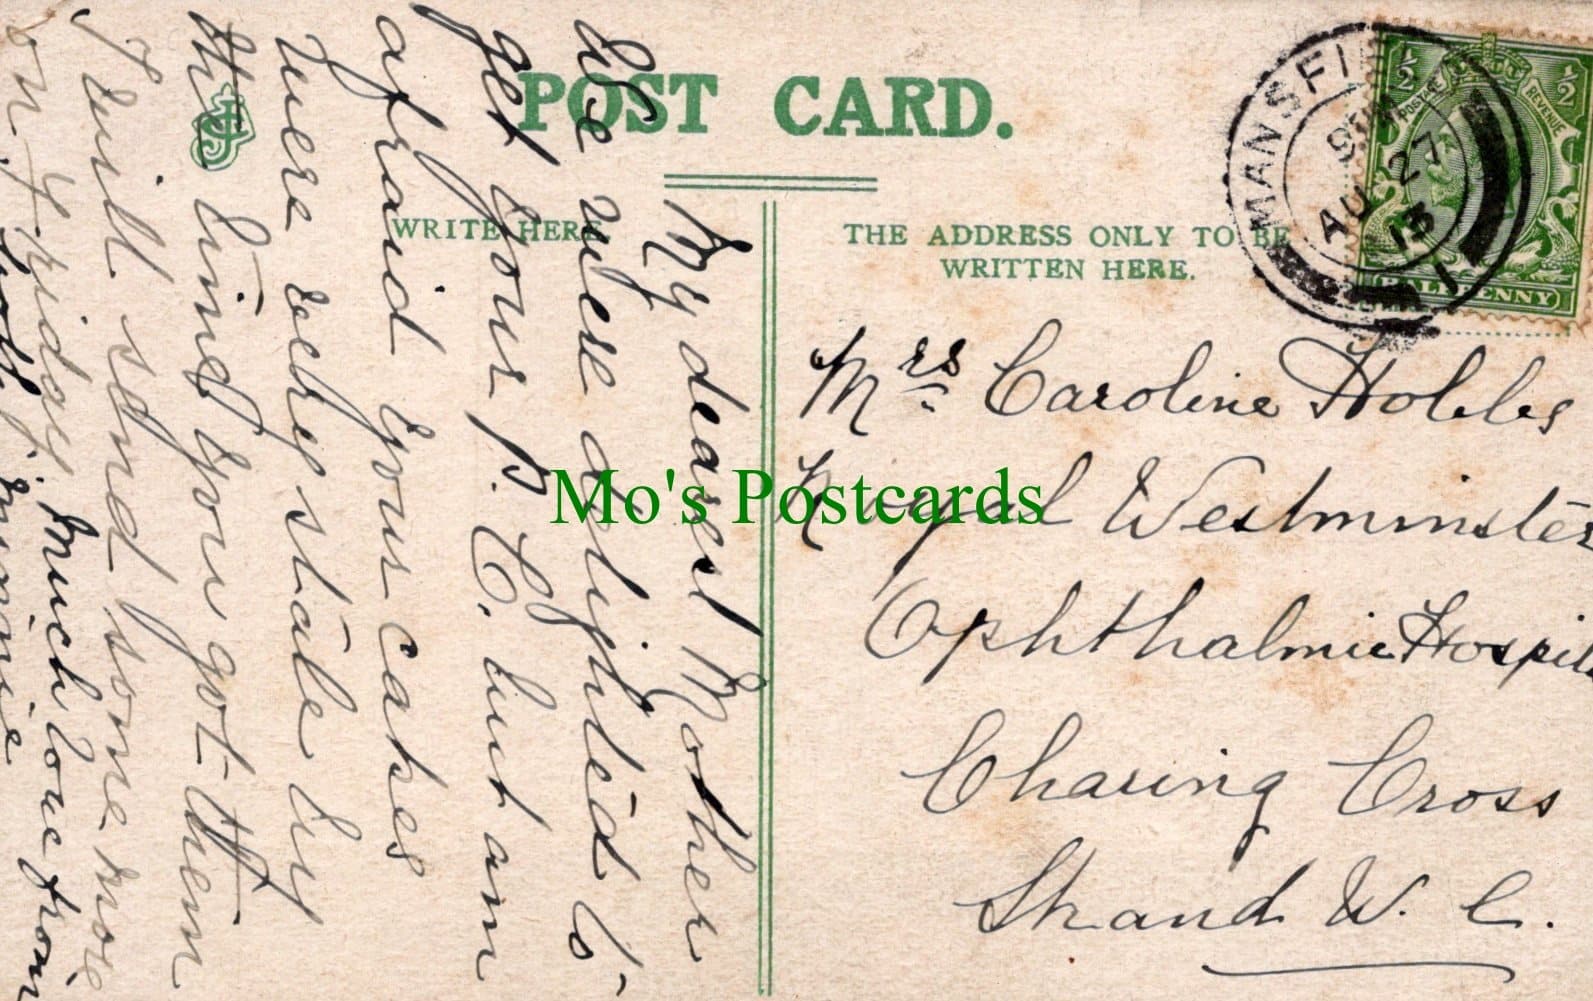 POST CARD.
WRITE HERE
THE ADDRESS ONLY TO BE
WRITTEN HERE.
MANSFI
AU 27
13
1
½
½
POSTAGE
REVENUE
HALFPENNY
My dearest Mother
We were delighted to
get your P. C. but am
afraid your cakes
were very stale by
the time you got them
I will send some more
on Friday. Much love from
both J. Minnie
Mrs Caroline Hobbs
Royal Westminster
Ophthalmic Hospital
Charing Cross
Strand W. C.
Mo's Postcards